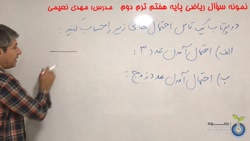 نمونه سؤال ریاضی پایه هفتم ترم دوم مدرس: مهدی نعیمی
در پرتاب یک تاس احتمال های زیر را حساب کنید:
الف) احتمال آمدن عدد ۳ :
ب) احتمال آمدن عدد زوج :